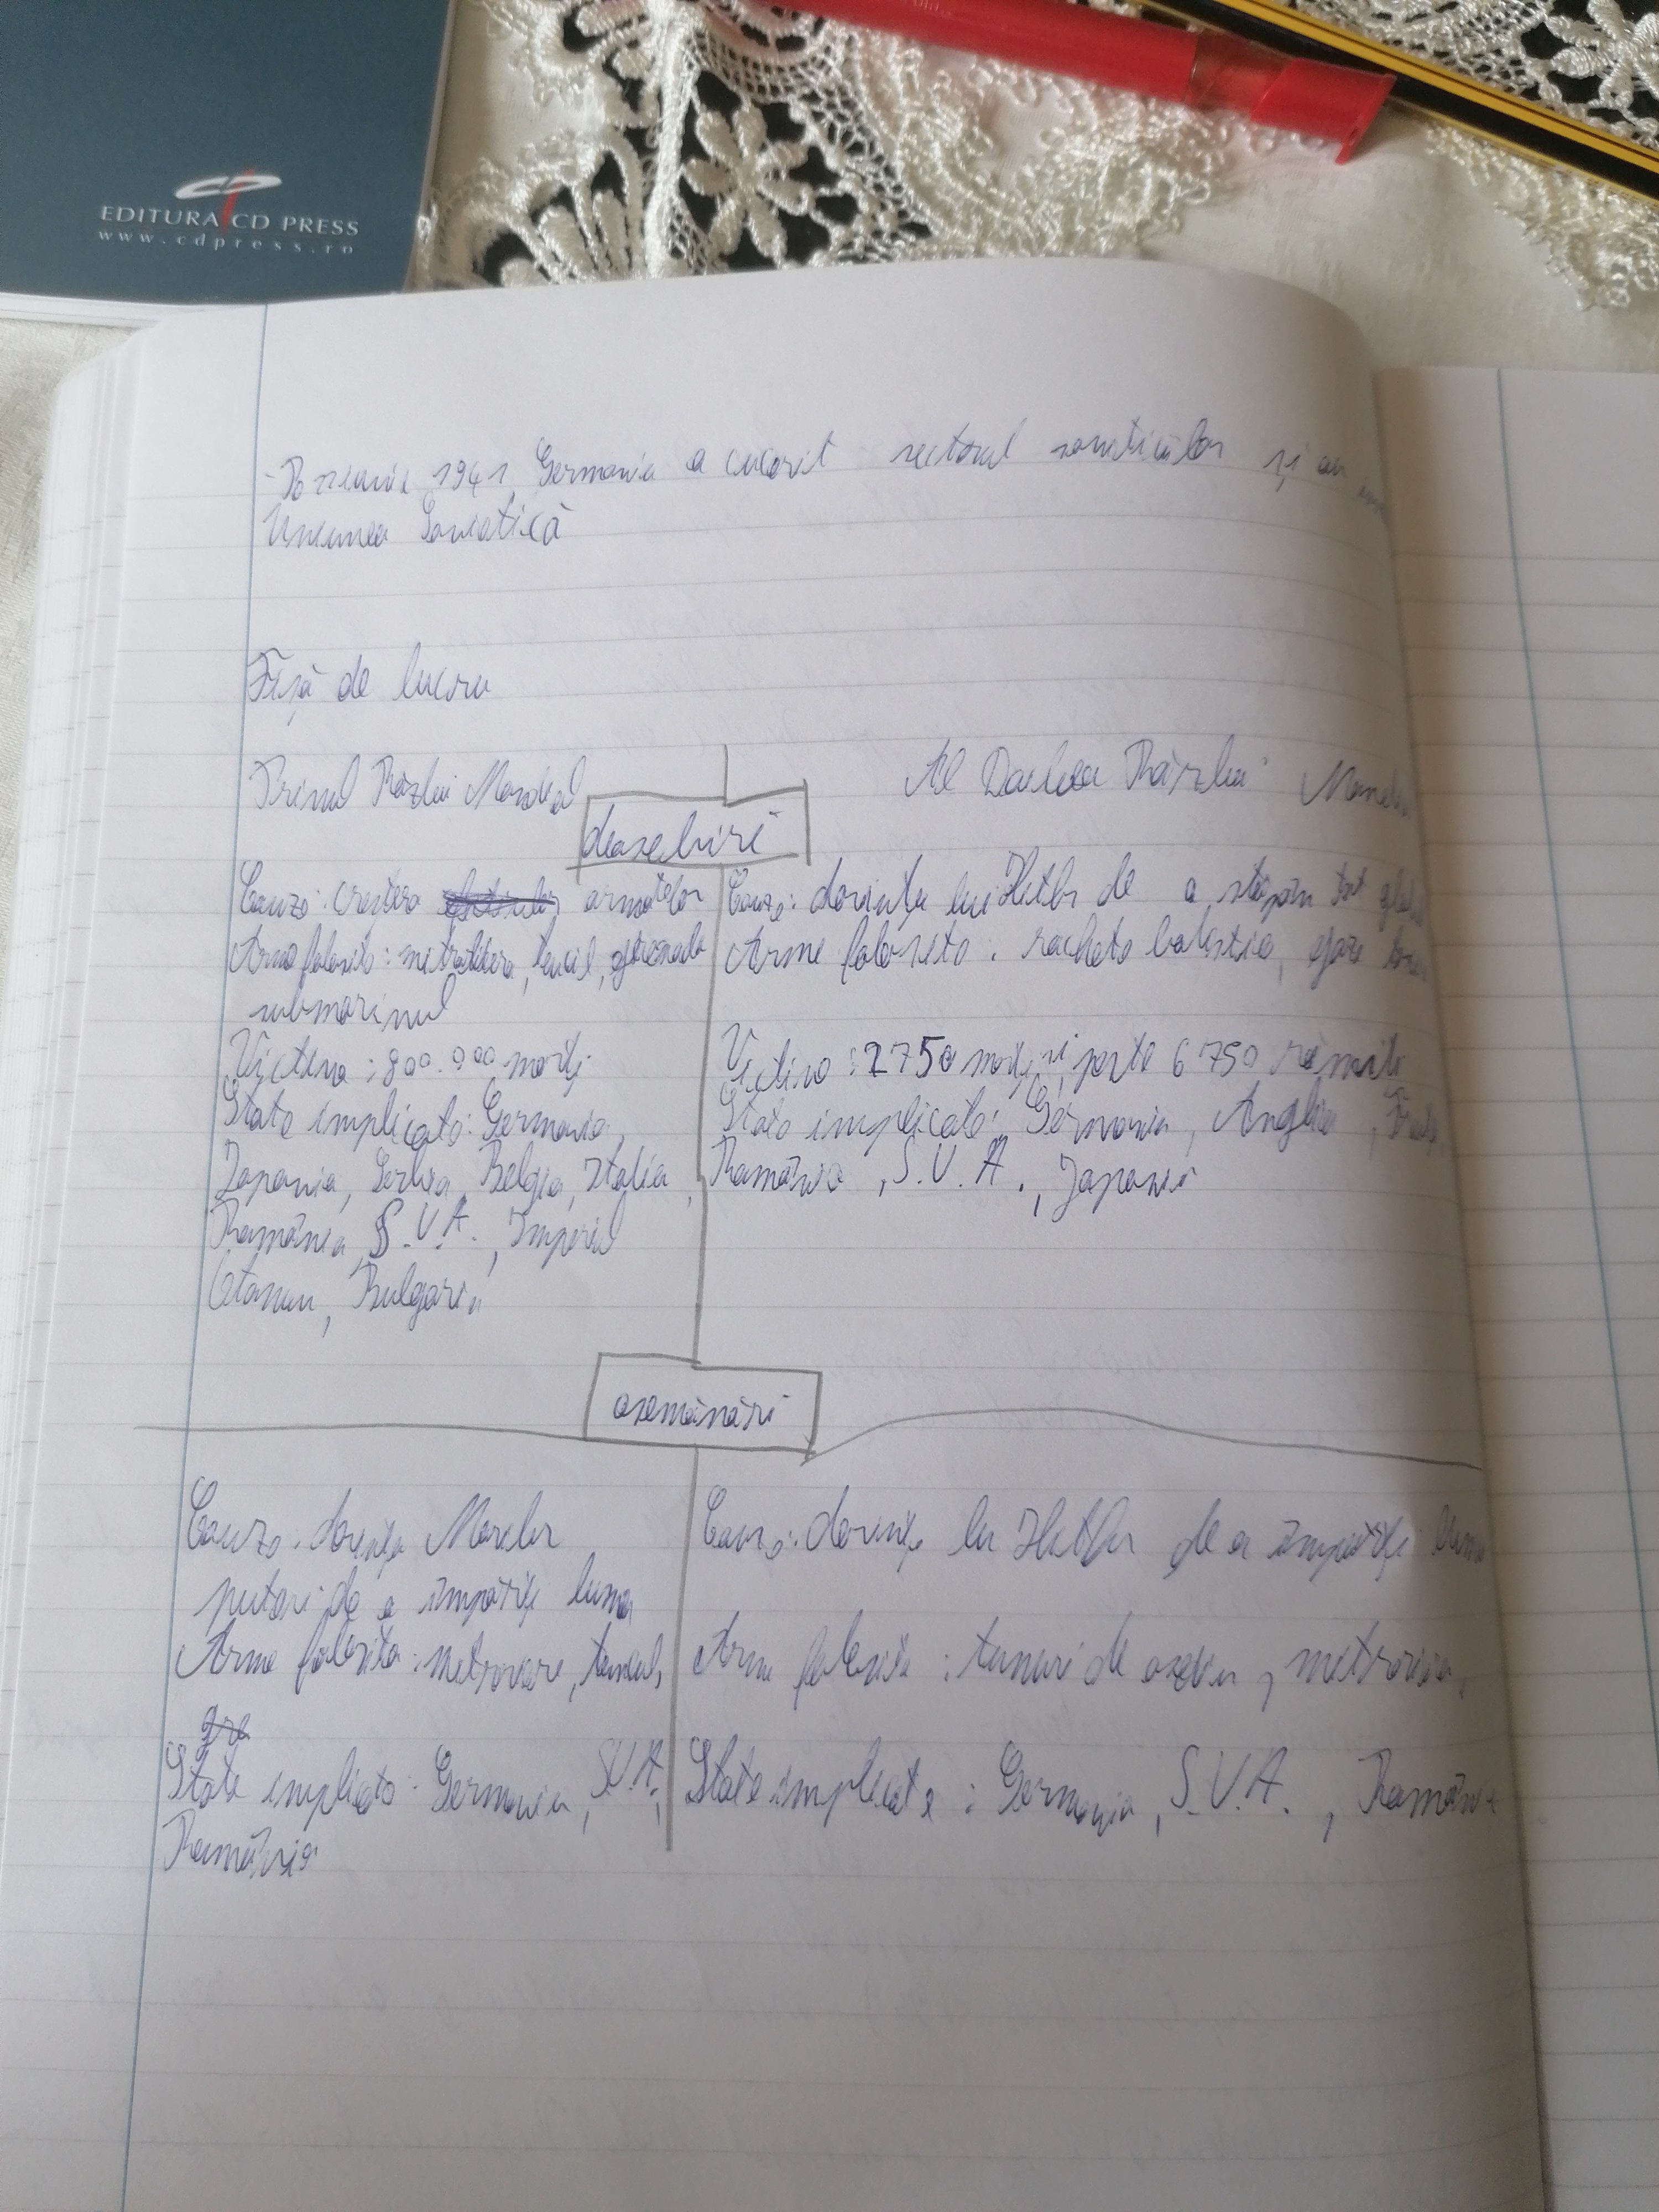 EDITURA CD PRESS
www.cdpress.ro
1941, Germania a cucorit sectorul sovieticilor și au
Uniunea Sovietică
Fișă de lucru
Primul Război Mondial
Al Doilea Război Mondi
deosebiri
Cauze: creștera armatelor
Arme folosite: mitraliera, tancul, grenada
submarinul
Victime: 800.000 morți
State implicate: Germania,
Japonia, Serbia, Belgia, Italia,
România, S.U.A., Imperiul
Otoman, Bulgaria
Cauze: dorința lui Hitler de a stăpân tot
Arme folosite: rachete balistice, gaze
Victime: 2750 morți și peste 6750 rămito
State implicate: Germania, Anglia,
România, S.U.A., Japonia
asemănări
Cauze: dorința Marelor
puteri de a împărți lumea
Arme folosite: mitroviere, tancul,
gre
State implicate: Germania, S.U.A,
România
Cauze: dorința lui Hitler de a împărți lumea
Arme folosite: tunuri de asediu,
State implicate: Germania, S.U.A., România